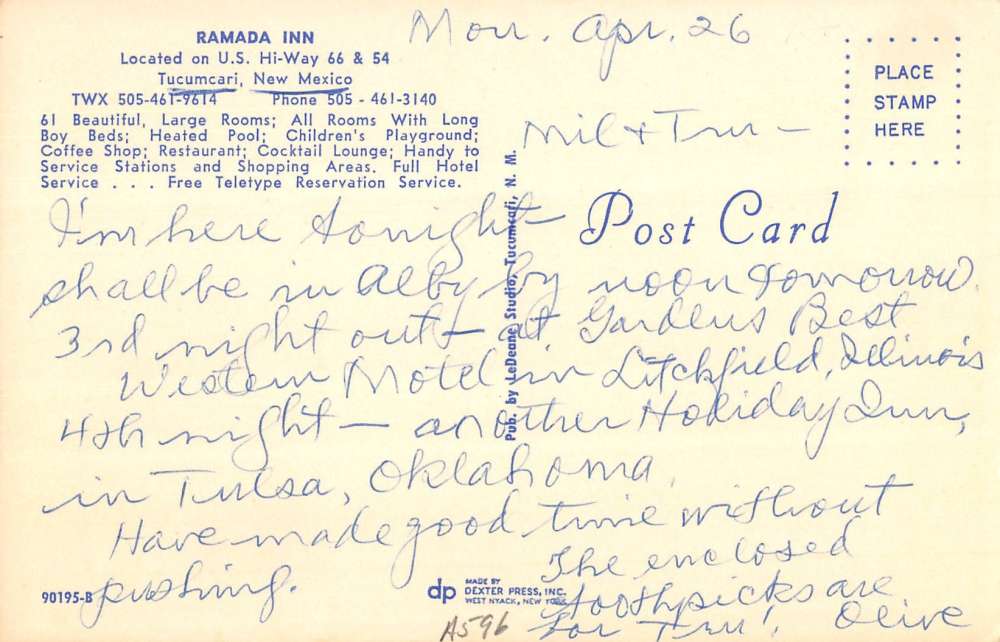 RAMADA INN
Located on U.S. Hi-Way 66 & 54
Tucumcari, New Mexico
TWX 505-461-9614 Phone 505 - 461-3140
61 Beautiful, Large Rooms; All Rooms With Long
Boy Beds; Heated Pool; Children's Playground;
Coffee Shop; Restaurant; Cocktail Lounge; Handy to
Service Stations and Shopping Areas. Full Hotel
Service . . . Free Teletype Reservation Service.
Mon. Apr. 26
PLACE
STAMP
HERE
Mil & Tru —
Post Card
I'm here tonight —
shall be in Alby by noon tomorrow.
3rd night out — at Gardens Best
Western Motel in Litchfield, Illinois
4th night — another Holiday Inn,
in Tulsa, Oklahoma.
Have made good time without
pushing.
The enclosed
toothpicks are
for Tru!
Olive
Pub. by LeDeane Studio, Tucumcari, N. M.
90195-B
dp
MADE BY
DEXTER PRESS, INC.
WEST NYACK, NEW YORK
A596